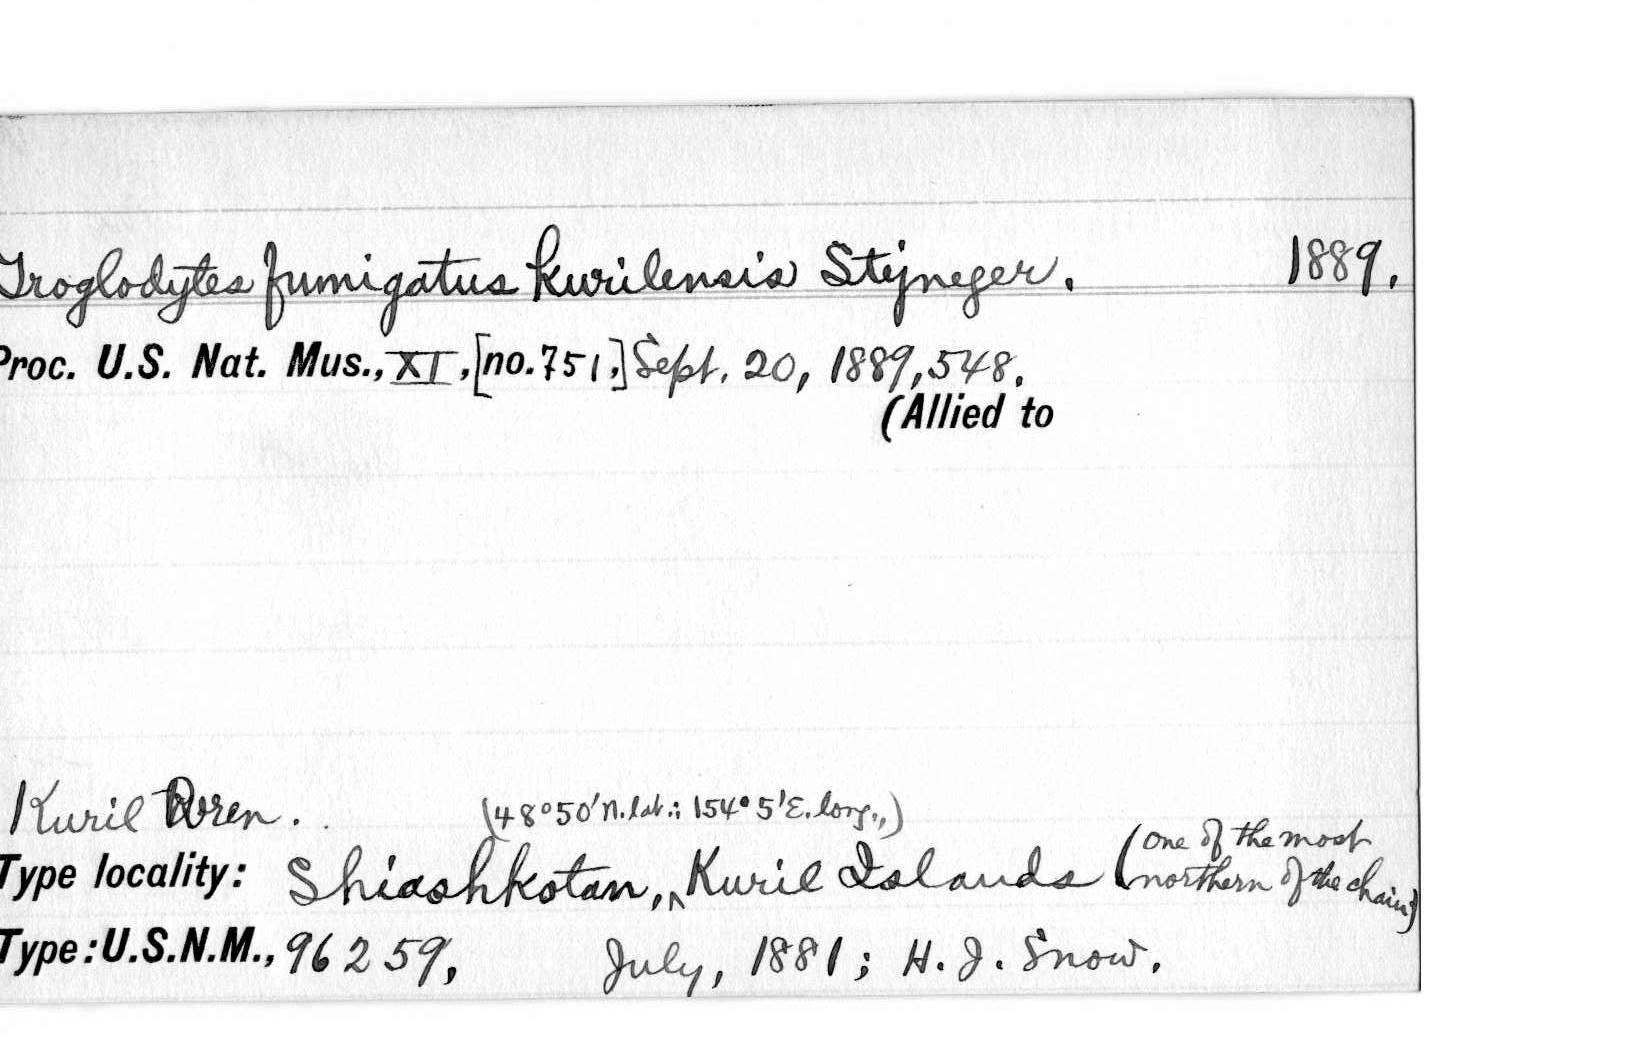 Troglodytes fumigatus kurilensis Stejneger. 1889.
Proc. U.S. Nat. Mus., XI, [no. 751,] Sept. 20, 1889, 548.
(Allied to
Kuril Wren.
(48°50' N. lat.; 154°5' E. long.,)
Type locality: Shiashkotan, ^ Kuril Islands (one of the most northern of the chain)
Type: U.S.N.M., 96259, July, 1881; H. J. Snow.